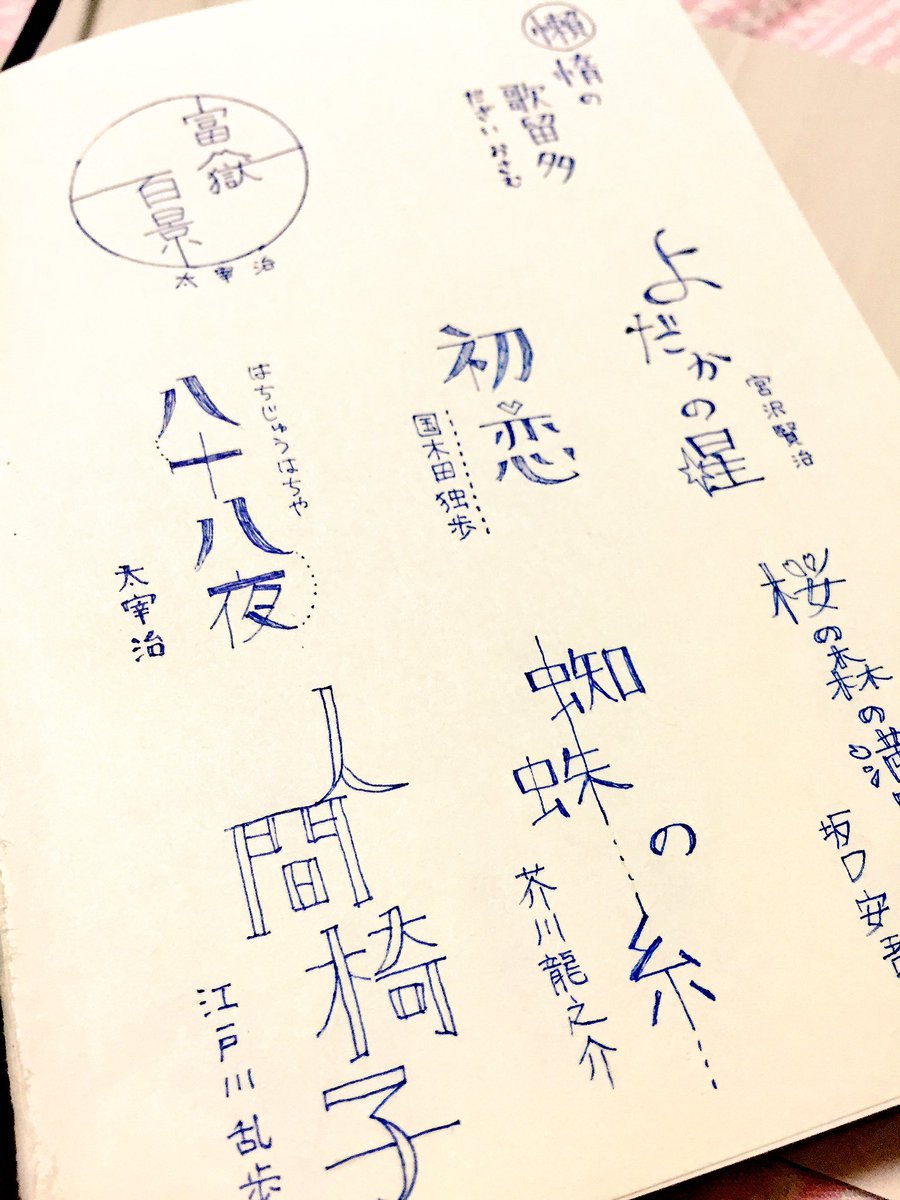 富嶽
百景
太宰治
懶惰の
歌留多
だざいおさむ
よだかの星
宮沢賢治
初恋
国木田独歩
八十八夜
はちじゅうはちや
太宰治
桜の森の満
坂口安吾
蜘蛛の糸
芥川龍之介
人間椅子
江戸川乱歩